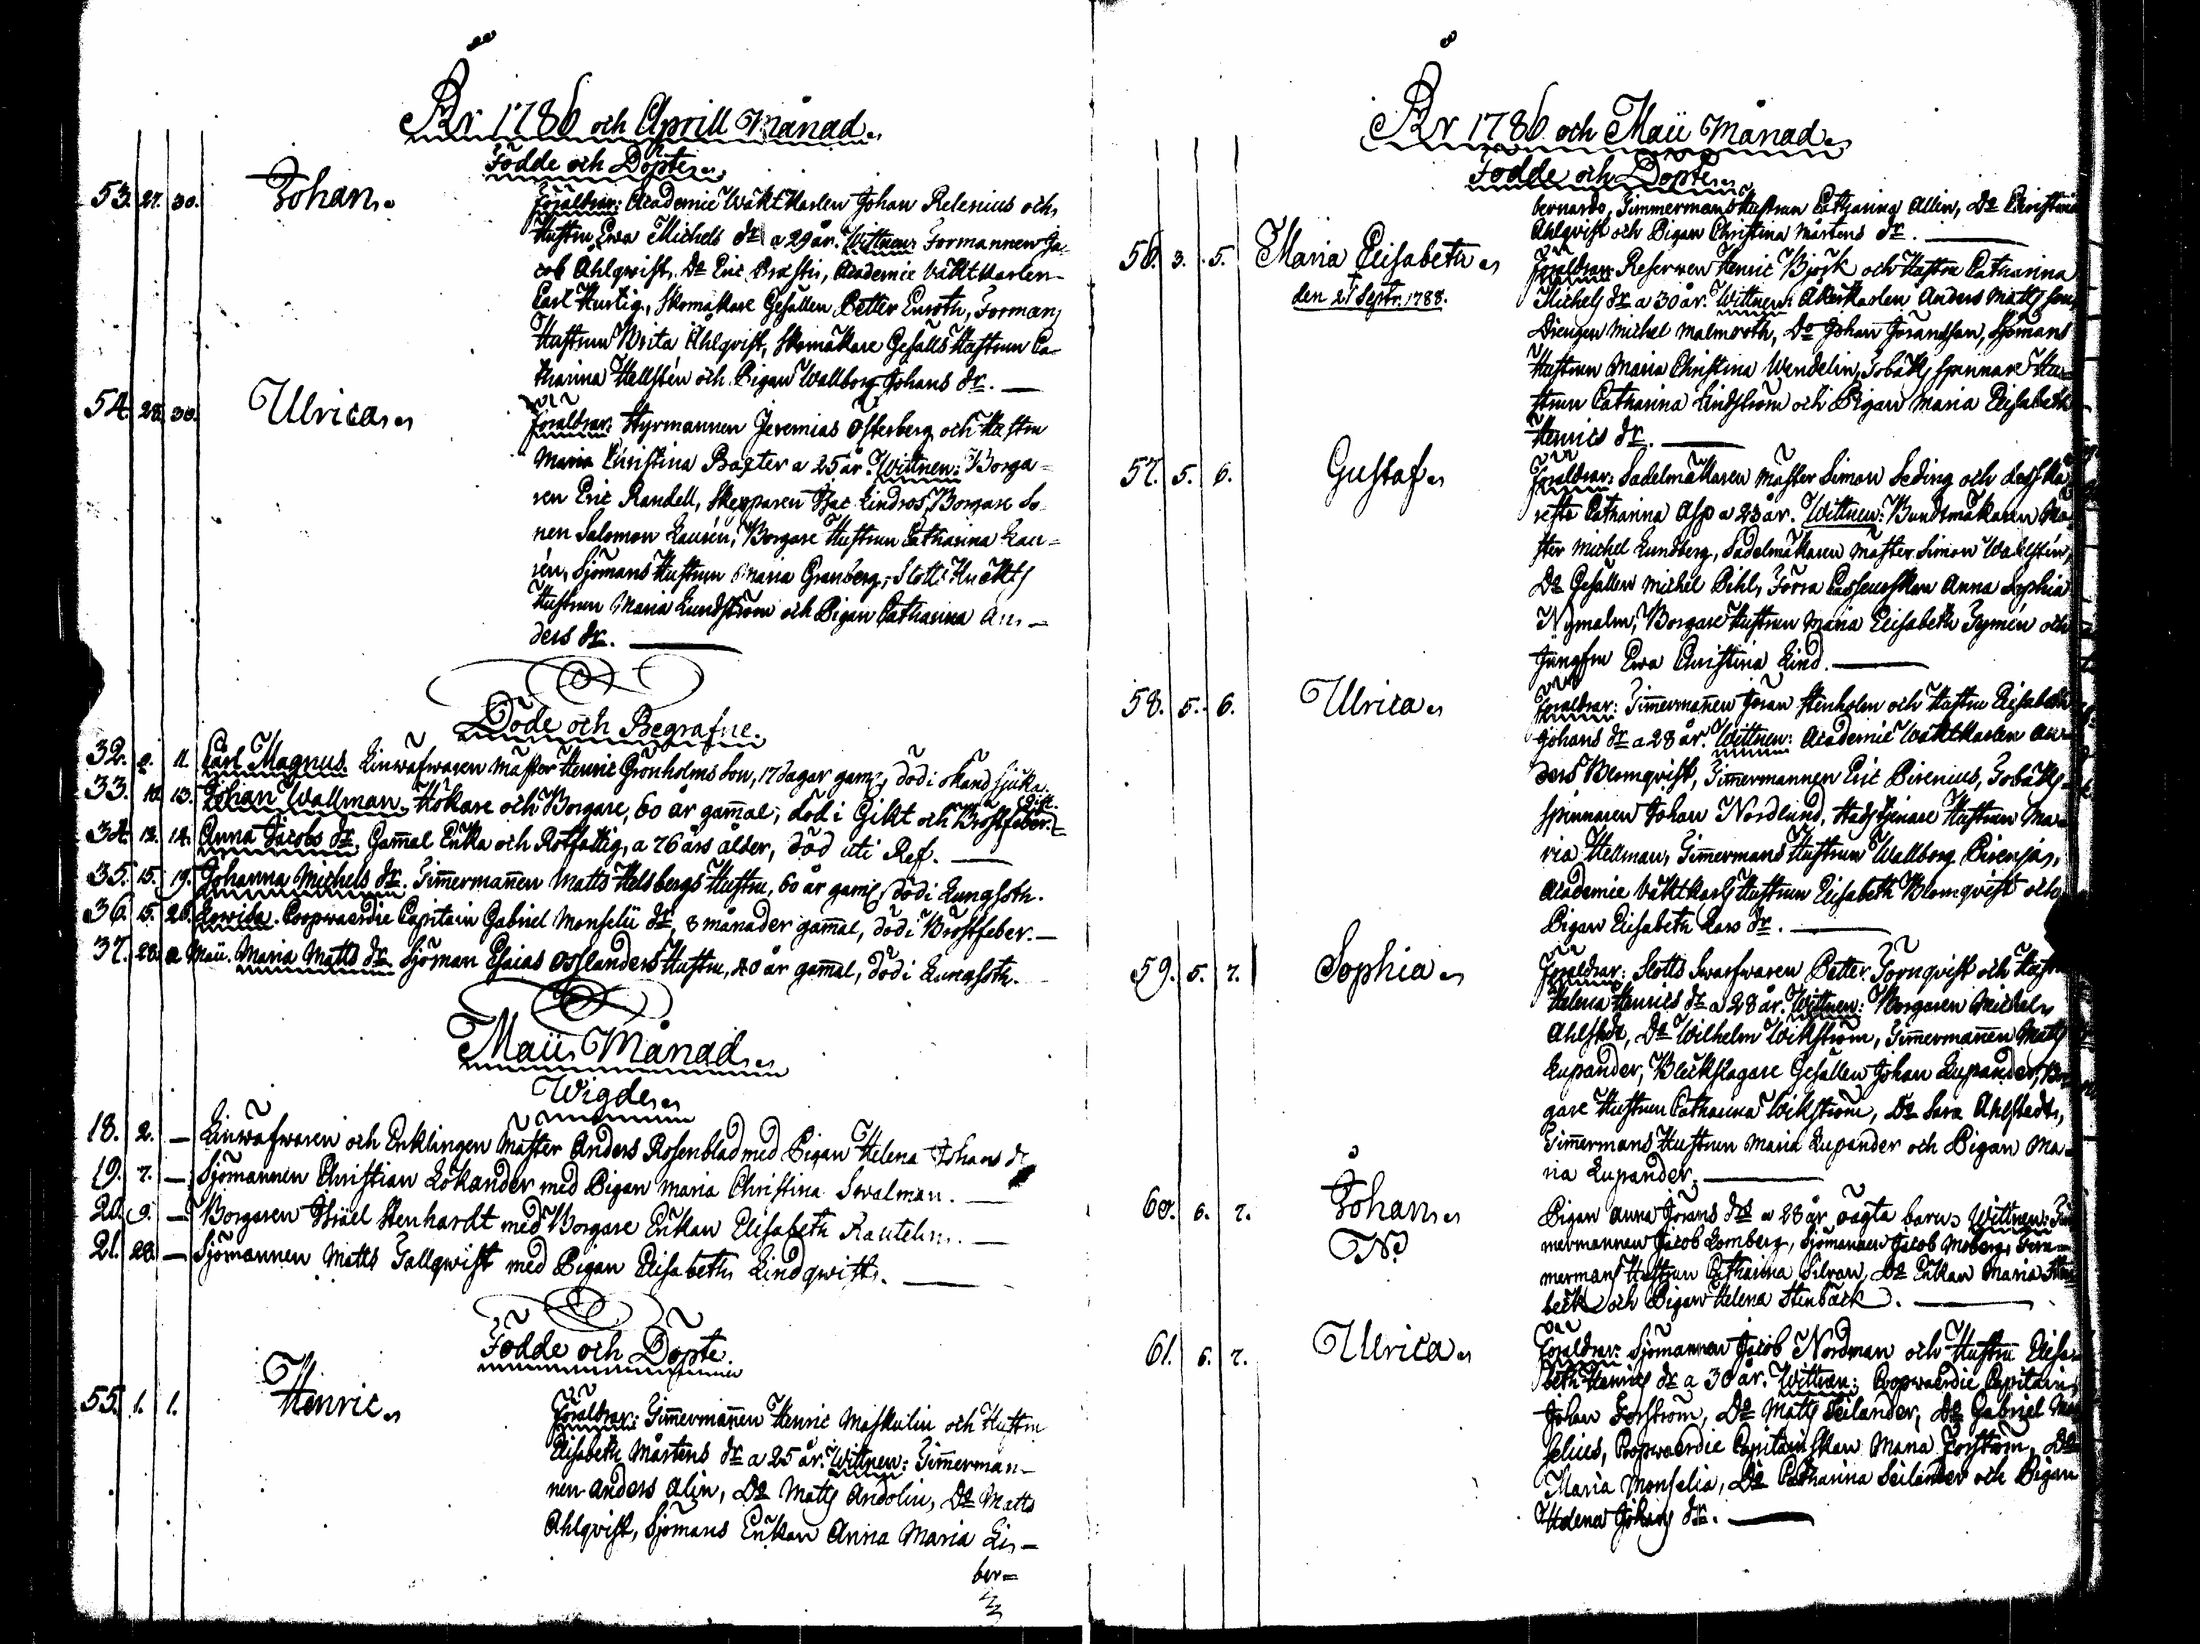 År 1786 och Aprill Månad.
Födde och Döpte.
53. 27. 30. Johan.
Föräldrar: Academie Wäkt Karlen Johan Relenius och
Hustru Ewa Michels dr a 29 år. Wittnen: Formannen Ja-
cob Ahlqvist, Do Eric Brastis, Academie Väkt karlen
Carl Hurtig, Skomakare Gesällen Petter Enroth, Formans
Hustrun Brita Ahlqvist, Skomakare Gesälls Hustrun Ca-
tharina Hellstén och Pigan Wallborg Johans dr.
54. 28. 30. Ulrica.
Föräldrar: Styrmannen Jeremias Österberg och Hustru
Maria Christina Baxter a 25 år. Wittnen: Borga=
ren Eric Randell, Skepparen Isac Lindros, Borgare So-
nen Salomon Laurén, Borgare Hustrun Catharina Lau=
rén, Sjömans Hustrun Maria Granberg, Slotts Knekts
Hustrun Maria Lundström och Pigan Catharina An-
ders dr.
Döde och Begrafne.
32. 9. 11. Carl Magnus. Linwäfwaren Mäster Henric Grönholms Son, 17 dagar gaml, död i okänd sjuka.
33. 10. 13. Johan Wallman. Hökare och Borgare, 60 år gam̄al, död i Gikt och Bröstfeber.
34. 12. 14. Anna Jacobs dr. Gam̄al Enka och Rotfattig, a 76 års ålder, död uti Ref.
35. 15. 19. Johanna Michels dr. Tim̄erman̄en Matts Helsbergs Hustru, 60 år gaml, död i Lungsoth.
36. 15. 20. Lowisa. Coopwaerdie Capitain Gabriel Monselii dr, 8 månader gam̄al, död i Bröstfeber.
37. 28. 2 Maii. Maria Matts dr. Sjöman Esaias Osslanders Hustru, 40 år gam̄al, död i Lungsoth.
Maii Månad.
Wigde.
18. 2. — Linwäfwaren och Enklingen Mäster Anders Rosenblad med Pigan Helena Johans dr
19. 7. — Sjömannen Christian Lökander med Pigan Maria Christina Swalman.
20. 9. — Borgaren Israel Stenhardt med Borgare Enkan Elisabeth Rautelin.
21. 28. — Sjömannen Matts Tallqwist med Pigan Elisabeth Lindqwist.
Födde och Döpte.
55. 1. 1. Henric.
Föräldrar: Tim̄erman̄en Henric Maskulin och Hustru
Elisabeth Mårtens dr a 25 år. Wittnen: Tim̄erman-
nen Anders Alin, Do Matts Andolin, Do Matts
Ahlqvist, Sjömans Enkan Anna Maria Lis-
ber=
År 1786 och Maii Månad.
Födde och Döpte.
bernardo, Timmermans Hustrun Catharina Allin, Do Christina
Ahlqvist och Pigan Christina Mårtens dr.
56. 3. 5. Maria Elisabeth.
† den 21 Septr. 1788.
Föräldrar: Reserven Henric Björk och Hustru Catharina
Michels dr a 30 år. Wittnen: Åkerkarlen Anders Mattsson,
Drengen Michel Malmroth, Do Johan Joransson, Sjömans
Hustrun Maria Christina Wendelin, Tobaks spinnare Hu-
strun Catharina Lindström och Pigan Maria Elisabeth
Henrics dr.
57. 5. 6. Gustaf.
Föräldrar: Sadelmakaren Mäster Simon Seding och dess Kä
resta Catharina Asp a 23 år. Wittnen: Buntmakaren Mä
ster Michel Lundberg, Sadelmakaren Mäster Simon Wahlstén,
Do Gesällen Michel Pihl, Förra Casseurskan Anna Sophia
Nymalm, Borgare Hustrun Maria Elisabeth Tymén och
Jungfru Ewa Christina Lind.
58. 5. 6. Ulrica.
Föräldrar: Tim̄erman̄en Joran Stenholm och Hustru Elisabeth
Johans dr a 28 år. Wittnen: Academie Wäktkarlen An-
ders Blomqvist, Tim̄ermannen Eric Birenius, Tobaks-
spinnaren Johan Nordlund, Stadstjenare Hustrun Ma-
ria Hellman, Tim̄ermans Hustrun Wallborg Birenia,
Academie Väktkarls Hustrun Elisabeth Blomqvist och
Pigan Elisabeth Lars dr.
59. 5. 7. Sophia.
Föräldrar: Slotts Swarfwaren Petter Törnqvist och Hustru
Helena Henrics dr a 28 år. Wittnen: Borgaren Michel
Ahlstedt, Do Wilhelm Wikström, Tim̄erman̄en Matts
Lupander, Bleckslagare Gesällen Johan Lupander, Bor
gare Hustrun Catharina Wikström, Do Sara Ahlstedt,
Tim̄ermans Hustrun Maria Lupander och Pigan Ma-
ria Lupander.
60. 6. 7. Johan.
Pigan Anna Jörans drs a 28 år oägta barn. Wittnen: Tim
mermannen Jacob Lomberg, Sjömannen Jacob Moberg, Tim-
mermans Hustrun Catharina Silvan, Do Enkan Maria Sten
beck och Pigan Helena Stenbäck.
61. 6. 7. Ulrica.
Föräldrar: Sjömannen Jacob Nordman och Hustru Elisa-
beth Henrics dr a 30 år. Wittnen: Coopwaerdie Capitain
Johan Forström, Do Matts Seilander, Do Gabriel Mon
selius, Coopwaerdie Capitainskan Maria Forström, Do
Maria Monselia, Do Catharina Seilander och Pigan
Helena Johans dr.